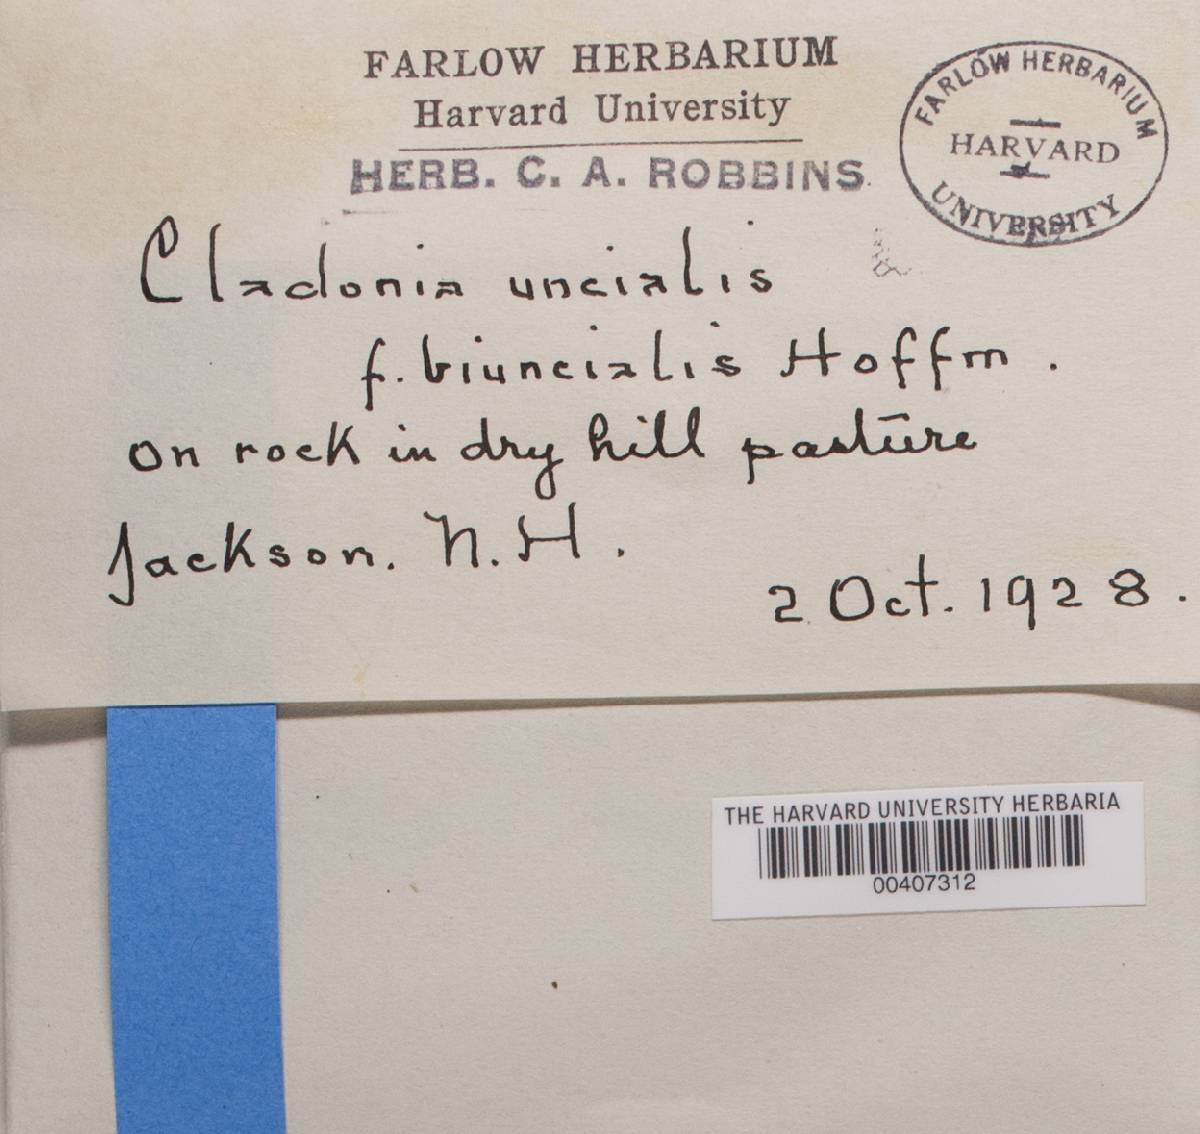 FARLOW HERBARIUM
Harvard University
HERB. C. A. ROBBINS.
FARLOW HERBARIUM
HARVARD
UNIVERSITY
Cladonia uncialis
f. biuncialis Hoffm.
on rock in dry hill pasture
Jackson. N.H.
2 Oct. 1928.
THE HARVARD UNIVERSITY HERBARIA
00407312